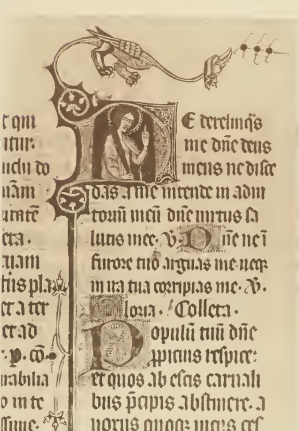 t qui
itur.
uclu do
nam
uitatē
cta.
tuam
tus pla
et a ter
et ad
.p. cō
irabilia
o in te
ssime.
E derelinq̄s
me dn̄e deus
meus ne disce
das a me intende in adiu
toriū meū dn̄e uirtus sa
lutis mee. V. Dn̄e ne ī
furore tuo arguas me neq;
in ira tua corripias me. V.
Gloria. Collecta.
Populū tuū dn̄e
ppicius respice:
et quos ab escis carnali
bus p̄cipis abstinere. a
noxiis quoq; uiciis ces